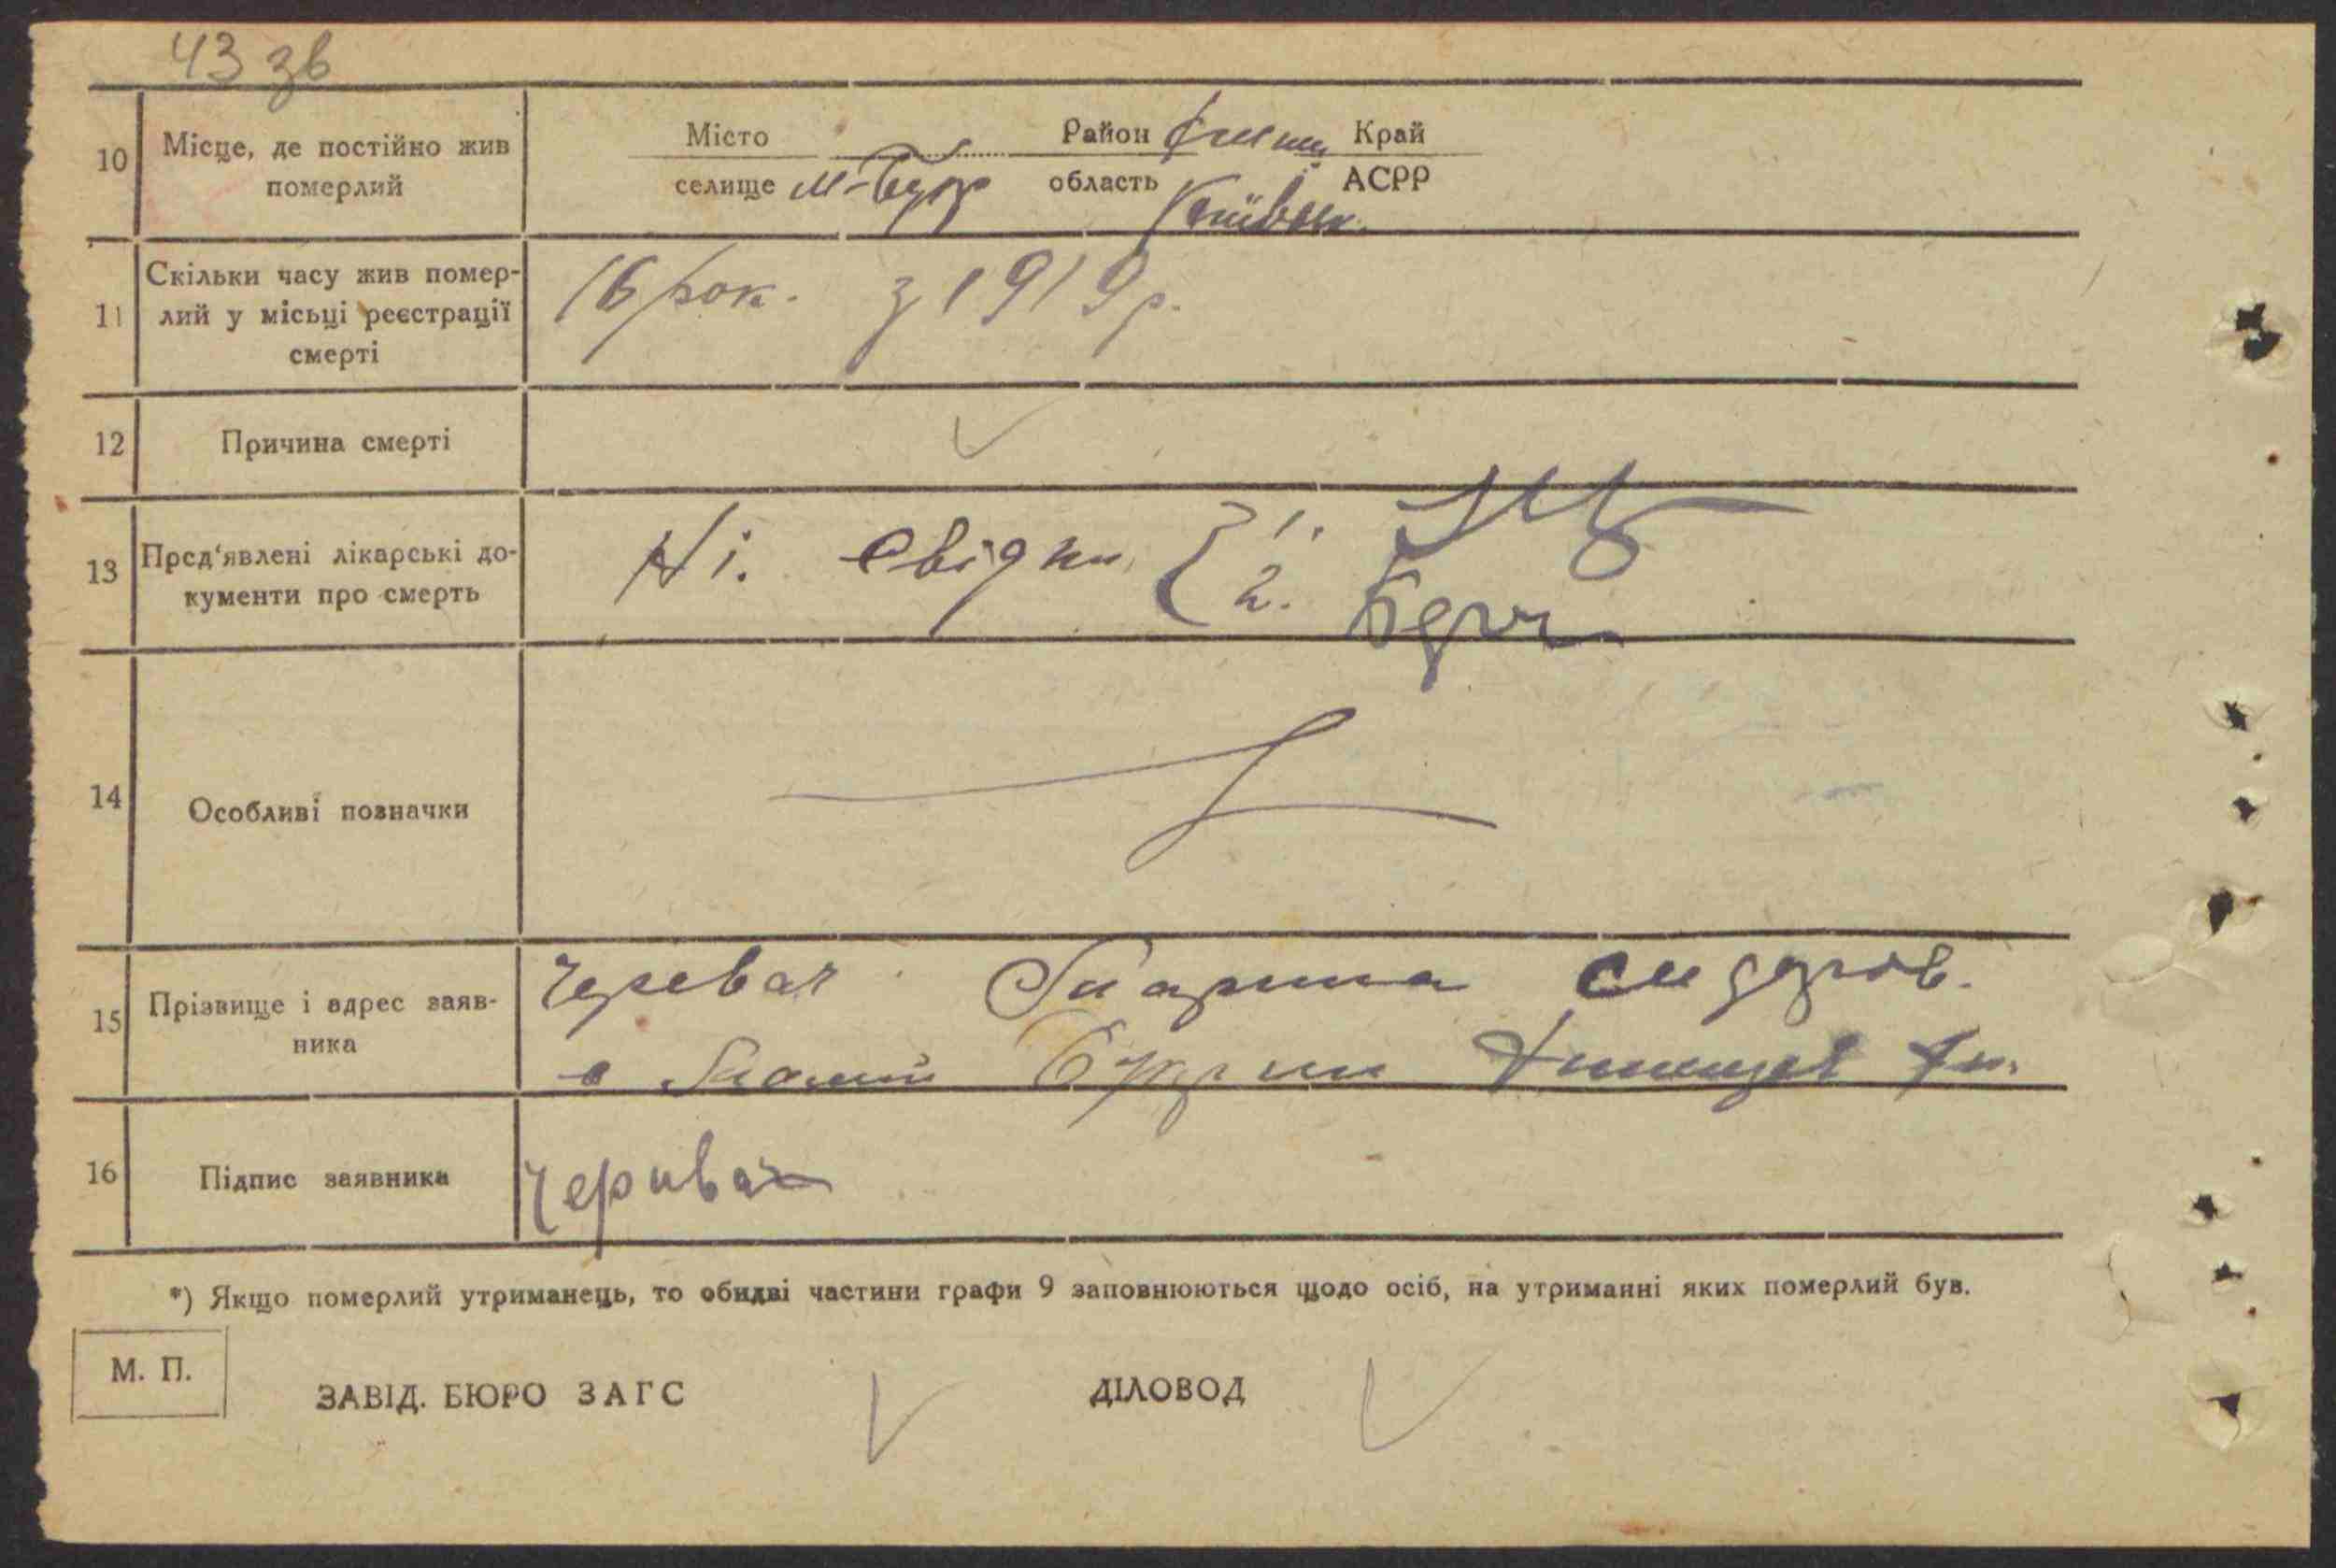 43 зв
10 Місце, де постійно жив померлий
Місто селище М-Букр Район область Київськ. Край АСРР
11 Скільки часу жив помер-
лий у місьці реєстрації
смерті
16 рок. з 1919 р.
12 Причина смерті
13 Пред'явлені лікарські до-
кументи про смерть
Ні. Свідки 1.
2.
14 Особливі позначки
15 Прізвище і адрес заяв-
ника
Черевач Марина Сидоров.
с Малий Букрин
16 Підпис заявника
Черивач
*) Якщо померлий утриманець, то обидві частини графи 9 заповнюються щодо осіб, на утриманні яких померлий був.
М. П.
ЗАВІД. БЮРО ЗАГС ДІЛОВОД